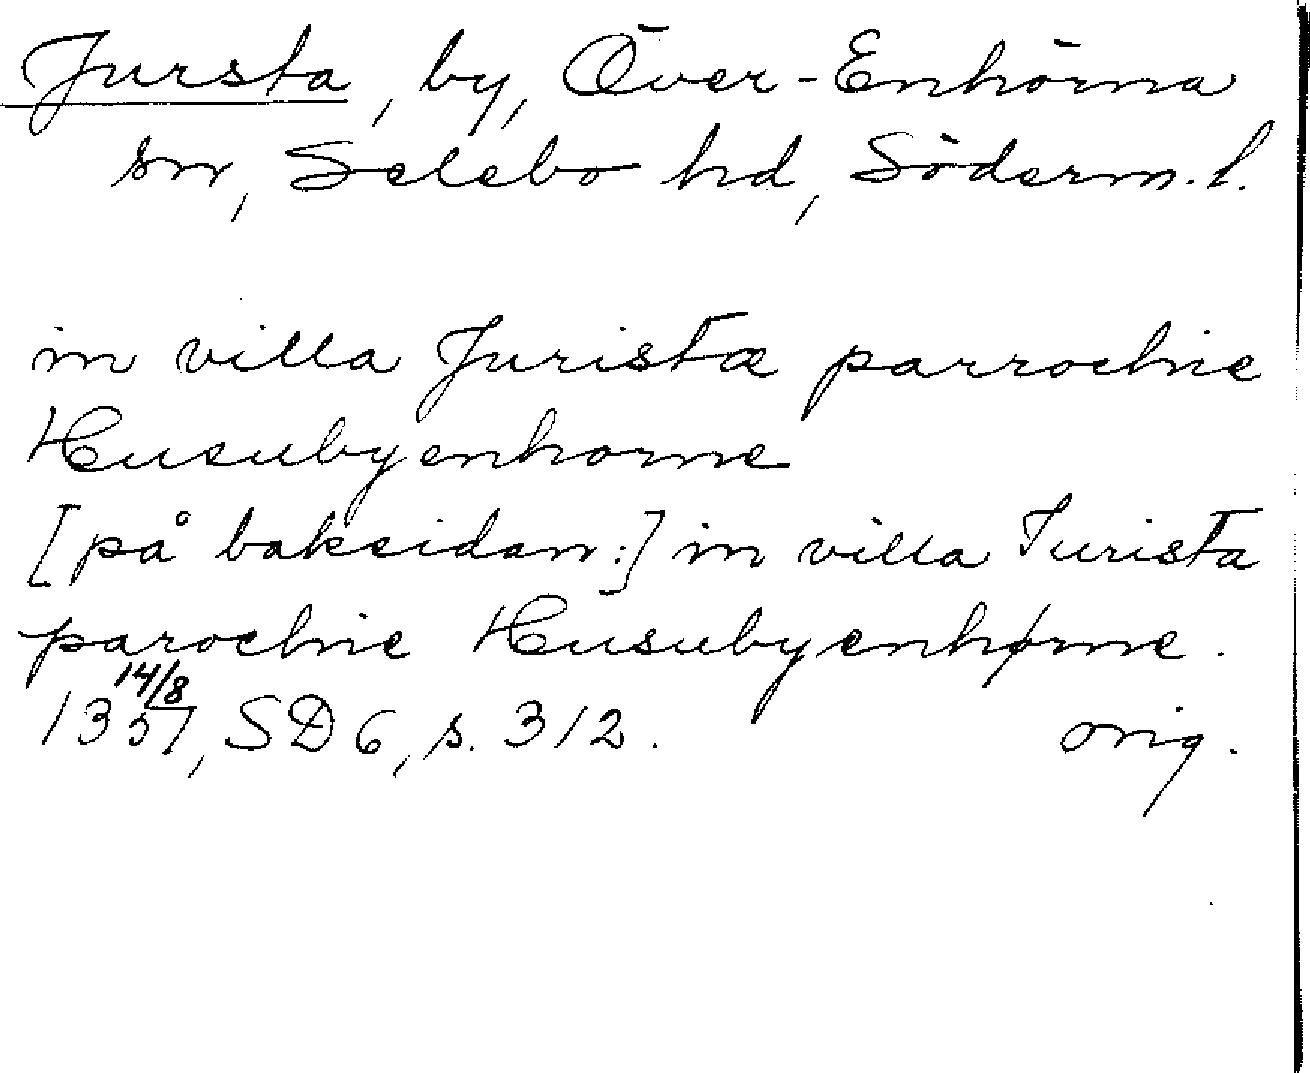 Jursta, by, Över-Enhörna
sn, Selebo hd, Söderm. l.
in villa Juristæ parrochie
Husubyenhorne
[på baksidan:] in villa Jurista
parochie Husubyenhørne.
14/8
1357, SD 6, s. 312. orig.